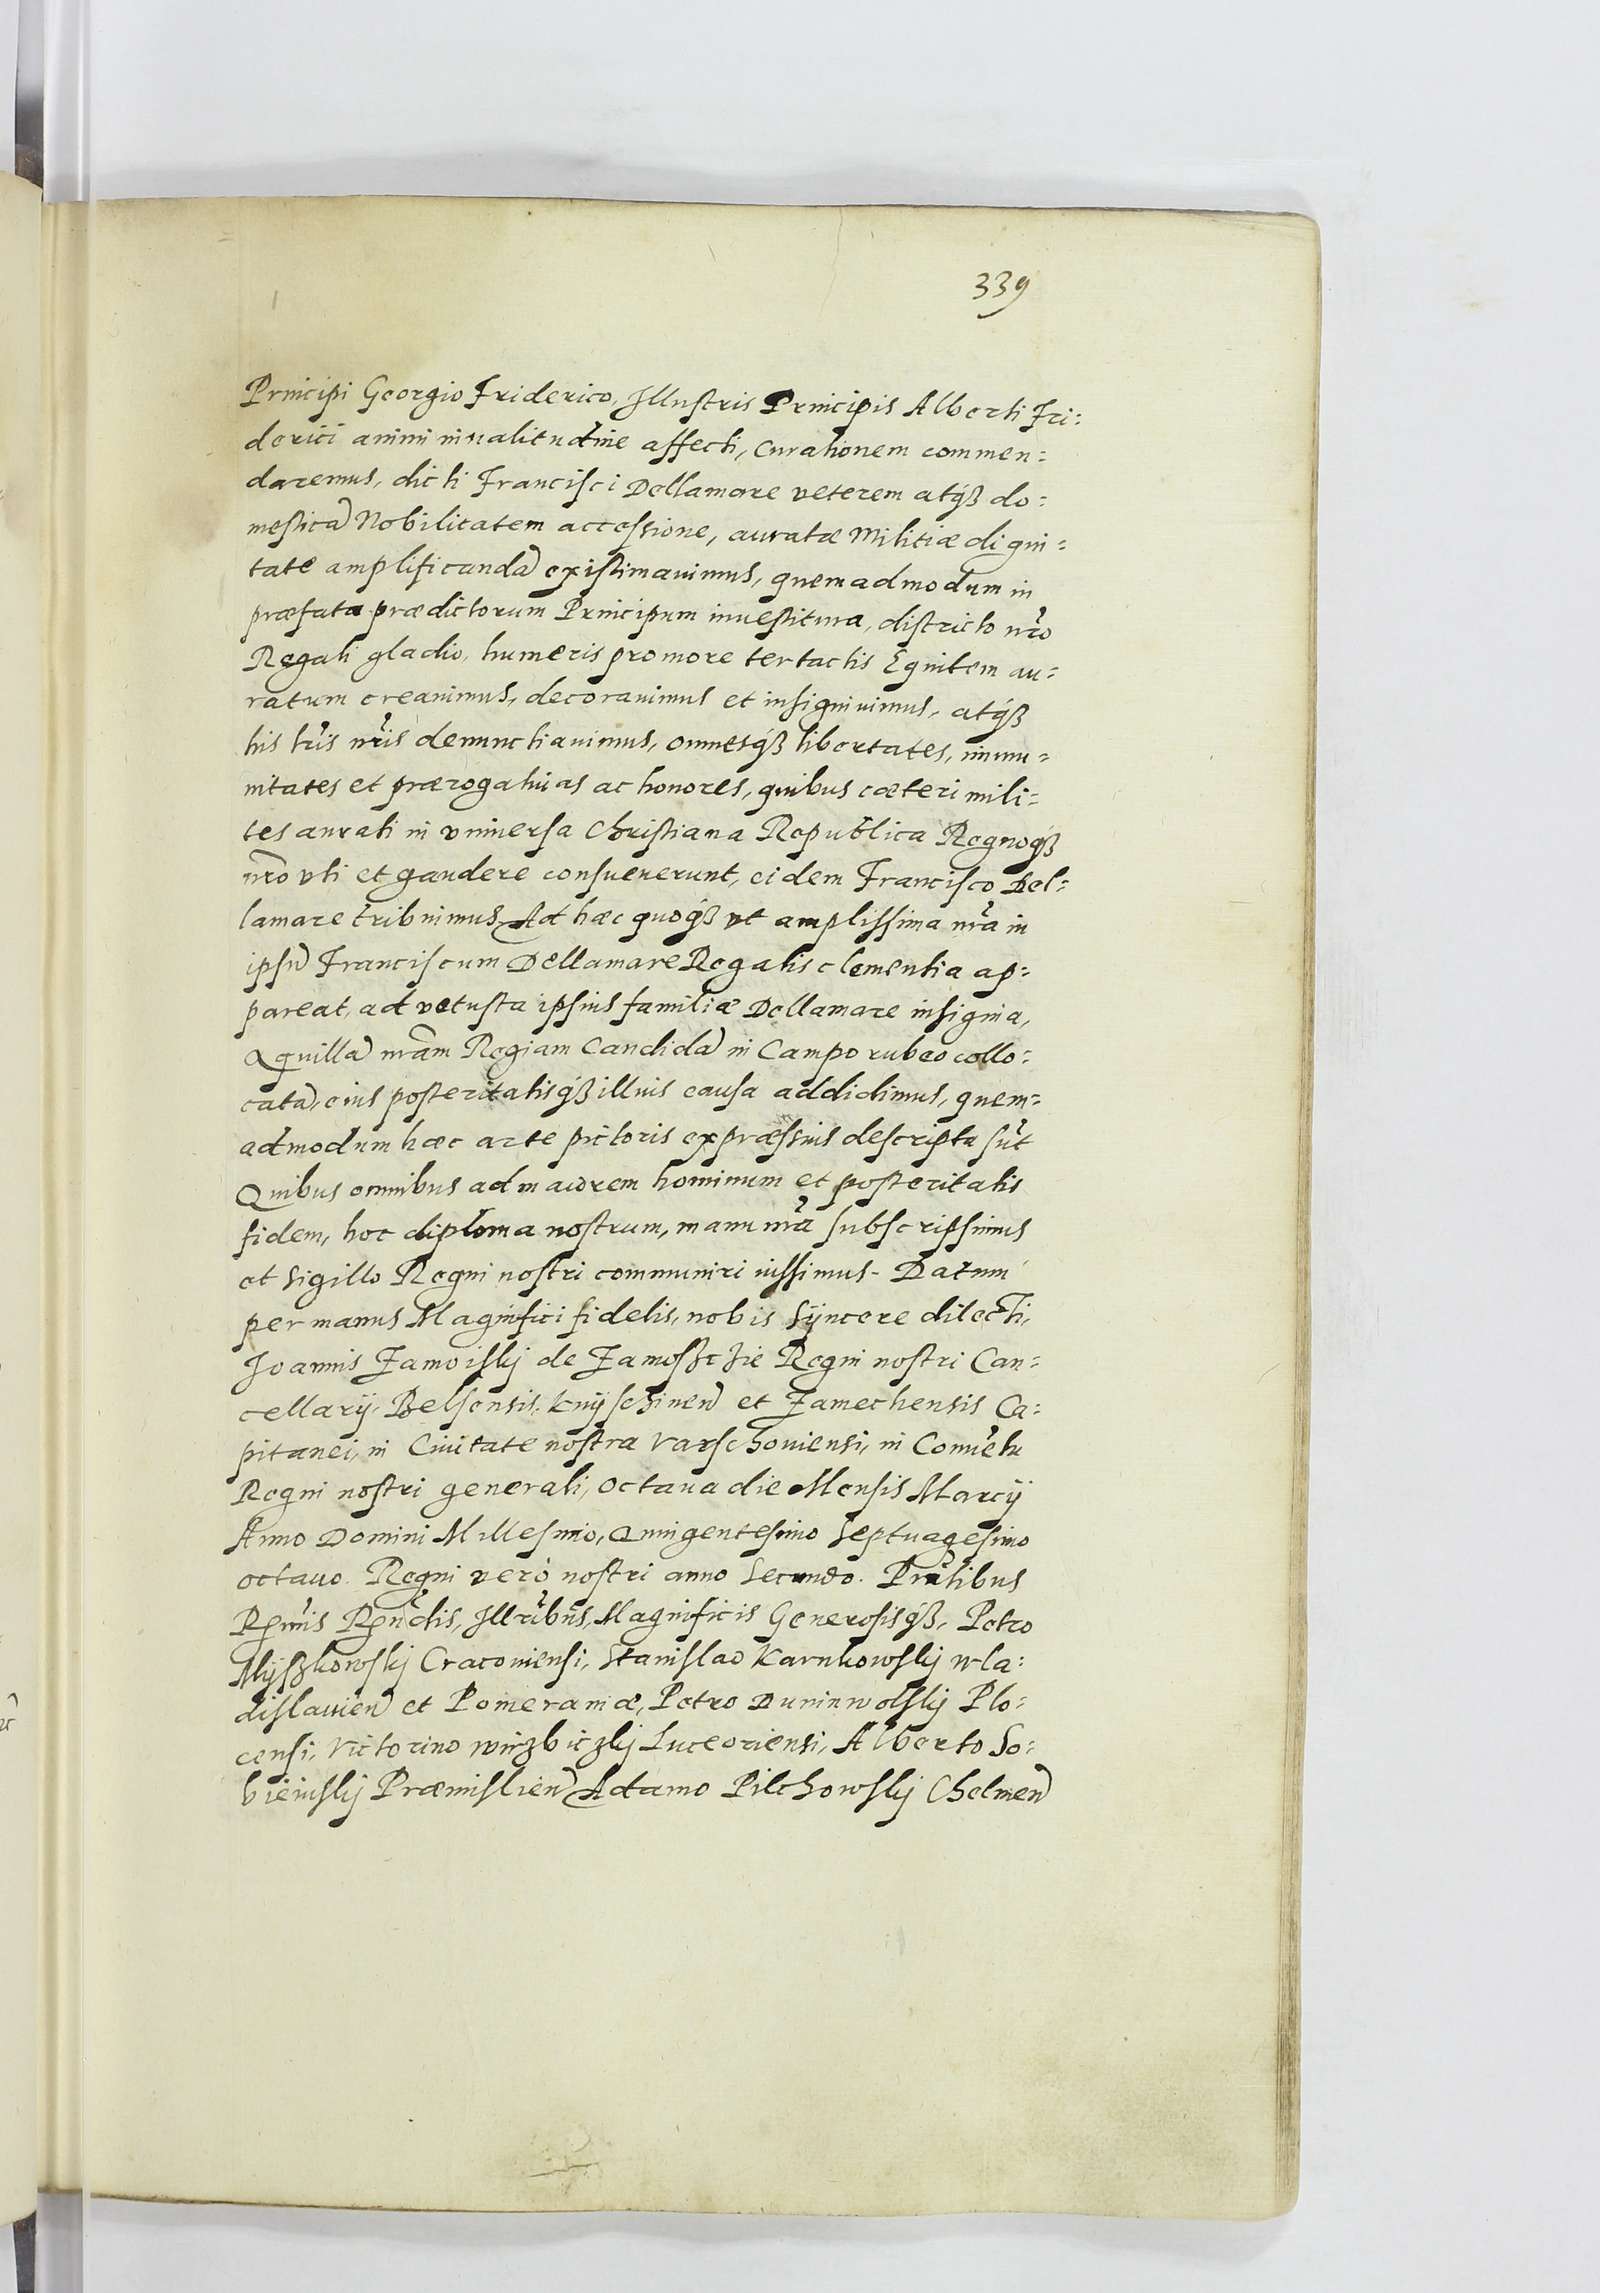 339
Principi Georgio Friderico, Illustris Principis Alberti Fri:
derici animi inualitudine affecti, curationem commen:
daremus, dicti Francisci Dellamare veterem atq́ʒ do:
mesticã Nobilitatem accessione, auratæ Militiæ digni:
tate amplificandã existimauimus, quemadmodum in
præfata prædictorum Principum inuestitura, districto nr̃o
Regali gladio, humeris pro more ter tactis Equitem au:
ratum creauimus, decorauimus et insigniuimus, atq́ʒ
his lr̃is nr̃is denunctiauimus, omnesq́ʒ libertates, immu:
nitates et prærogatiuas ac honores, quibus cæteri mili:
tes aurati in vniuersa Christiana Republica Regnoq́ʒ
nr̃o vti et gaudere consueuerunt, eidem Francisco Del:
lamare tribuimus Ad hæc quoq́ʒ vt amplissima nr̃a in
ipsũ Franciscum Dellamare Regalis clementia ap:
pareat, ad vetusta ipsius familiæ Dellamare insignia,
Aquillã nr̃am Regiam Candidã in Campo rubeo collo:
catã, eius posteritatisq́ʒ illius causa addidimus, quem:
admodum hæc arte pictoris expræssius descripta sũt
Quibus omnibus ad maiorem hominum et posteritatis
fidem, hoc diploma nostrum, manu nr̃a subscripsimus
et sigillo Regni nostri communiri iussimus. Datum
per manus Magnifici fidelis, nobis syncere dilecti,
Joannis Zamoisky de Zamosẛchie Regni nostri Can:
cellarÿ, Belsensis, Knÿschinen̄ et Zamechensis Ca:
pitanei, in Ciuitate nostra Varschouiensi, in Comiẽtu
Regni nostri generali, octaua die Mensis Marcÿ
Anno Domini Millesimo, Quingentesimo Septuagesimo
octauo. Regni verò nostri anno Secundo. Prñtibus
Rp̃mis Rp̃ndis, Illr̃ibus, Magnificis Generosisq́ʒ, Petro
Mÿszkowsky Cracouiensi, Stanislao Karnkowsky Wla:
dislauien̄ et Pomeraniæ, Petro Duninwolsky Plo:
censi, Victorino Wirzbiczky Luceoriensi, Alberto So:
bieiusky Præmislien̄ Adamo Pilchowsky Chelmen̄